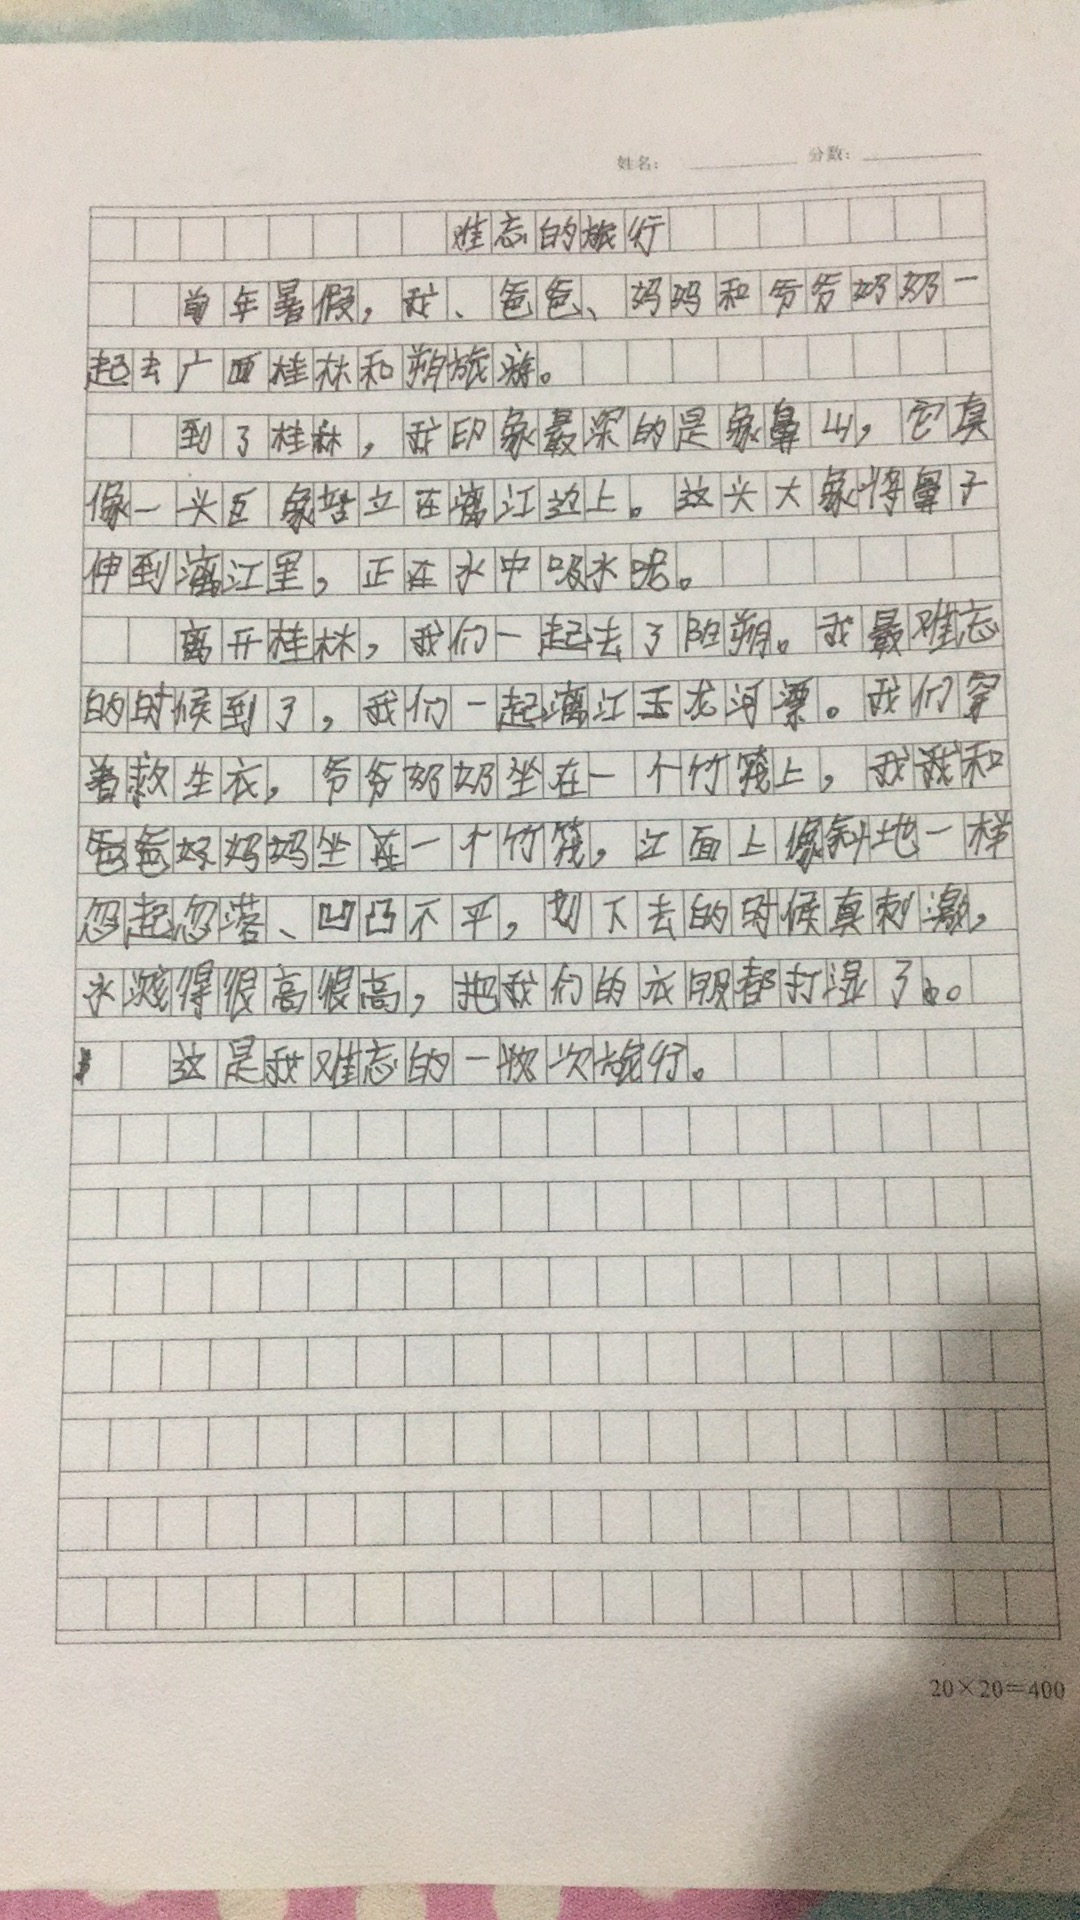 姓名： 分数：
难忘的旅行
前年暑假，我、爸爸、妈妈和爷爷奶奶一
起去广西桂林和朔旅游。
到了桂林，我印象最深的是象鼻山，它真
像一头巨象站立在漓江边上。这头大象将鼻子
伸到漓江里，正在水中吸水呢。
离开桂林，我们一起去了阳朔。我最难忘
的时候到了，我们一起漓江玉龙河漂。我们穿
着救生衣，爷爷奶奶坐在一个竹筏上，我我和
爸爸妈妈坐在一个竹筏，江面上像斜地一样
忽起忽落、凹凸不平，划下去的时候真刺激，
水溅得很高很高，把我们的衣服都打湿了。
这是我难忘的一次旅行。
20×20=400